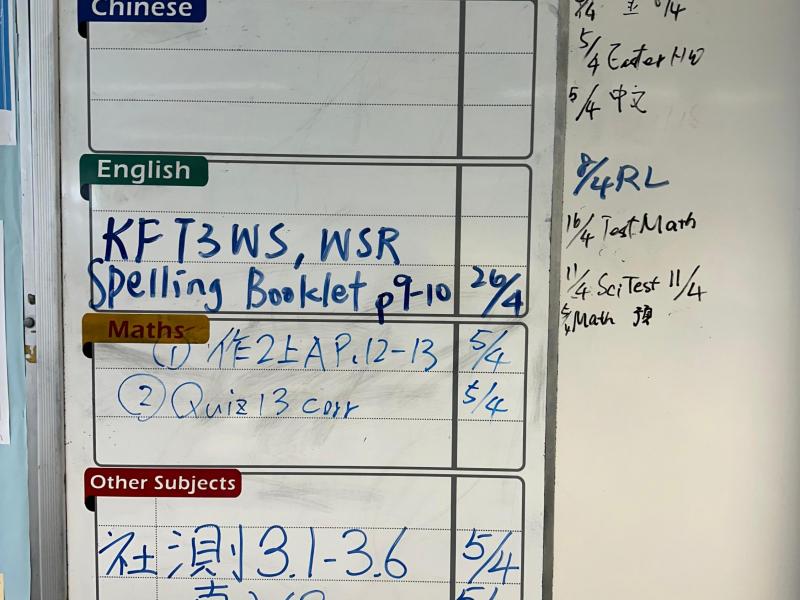 Chinese
English
KF T3 WS, WSR
Spelling Booklet p9-10 26/4
Maths
① 作2上A P.12-13 5/4
② Quiz 13 corr 5/4
Other Subjects
社 測 3.1-3.6 5/4
5/4 Easter HW
5/4 中文
8/4 RL
16/4 Test Math
11/4 Sci Test 11/4
Math 預